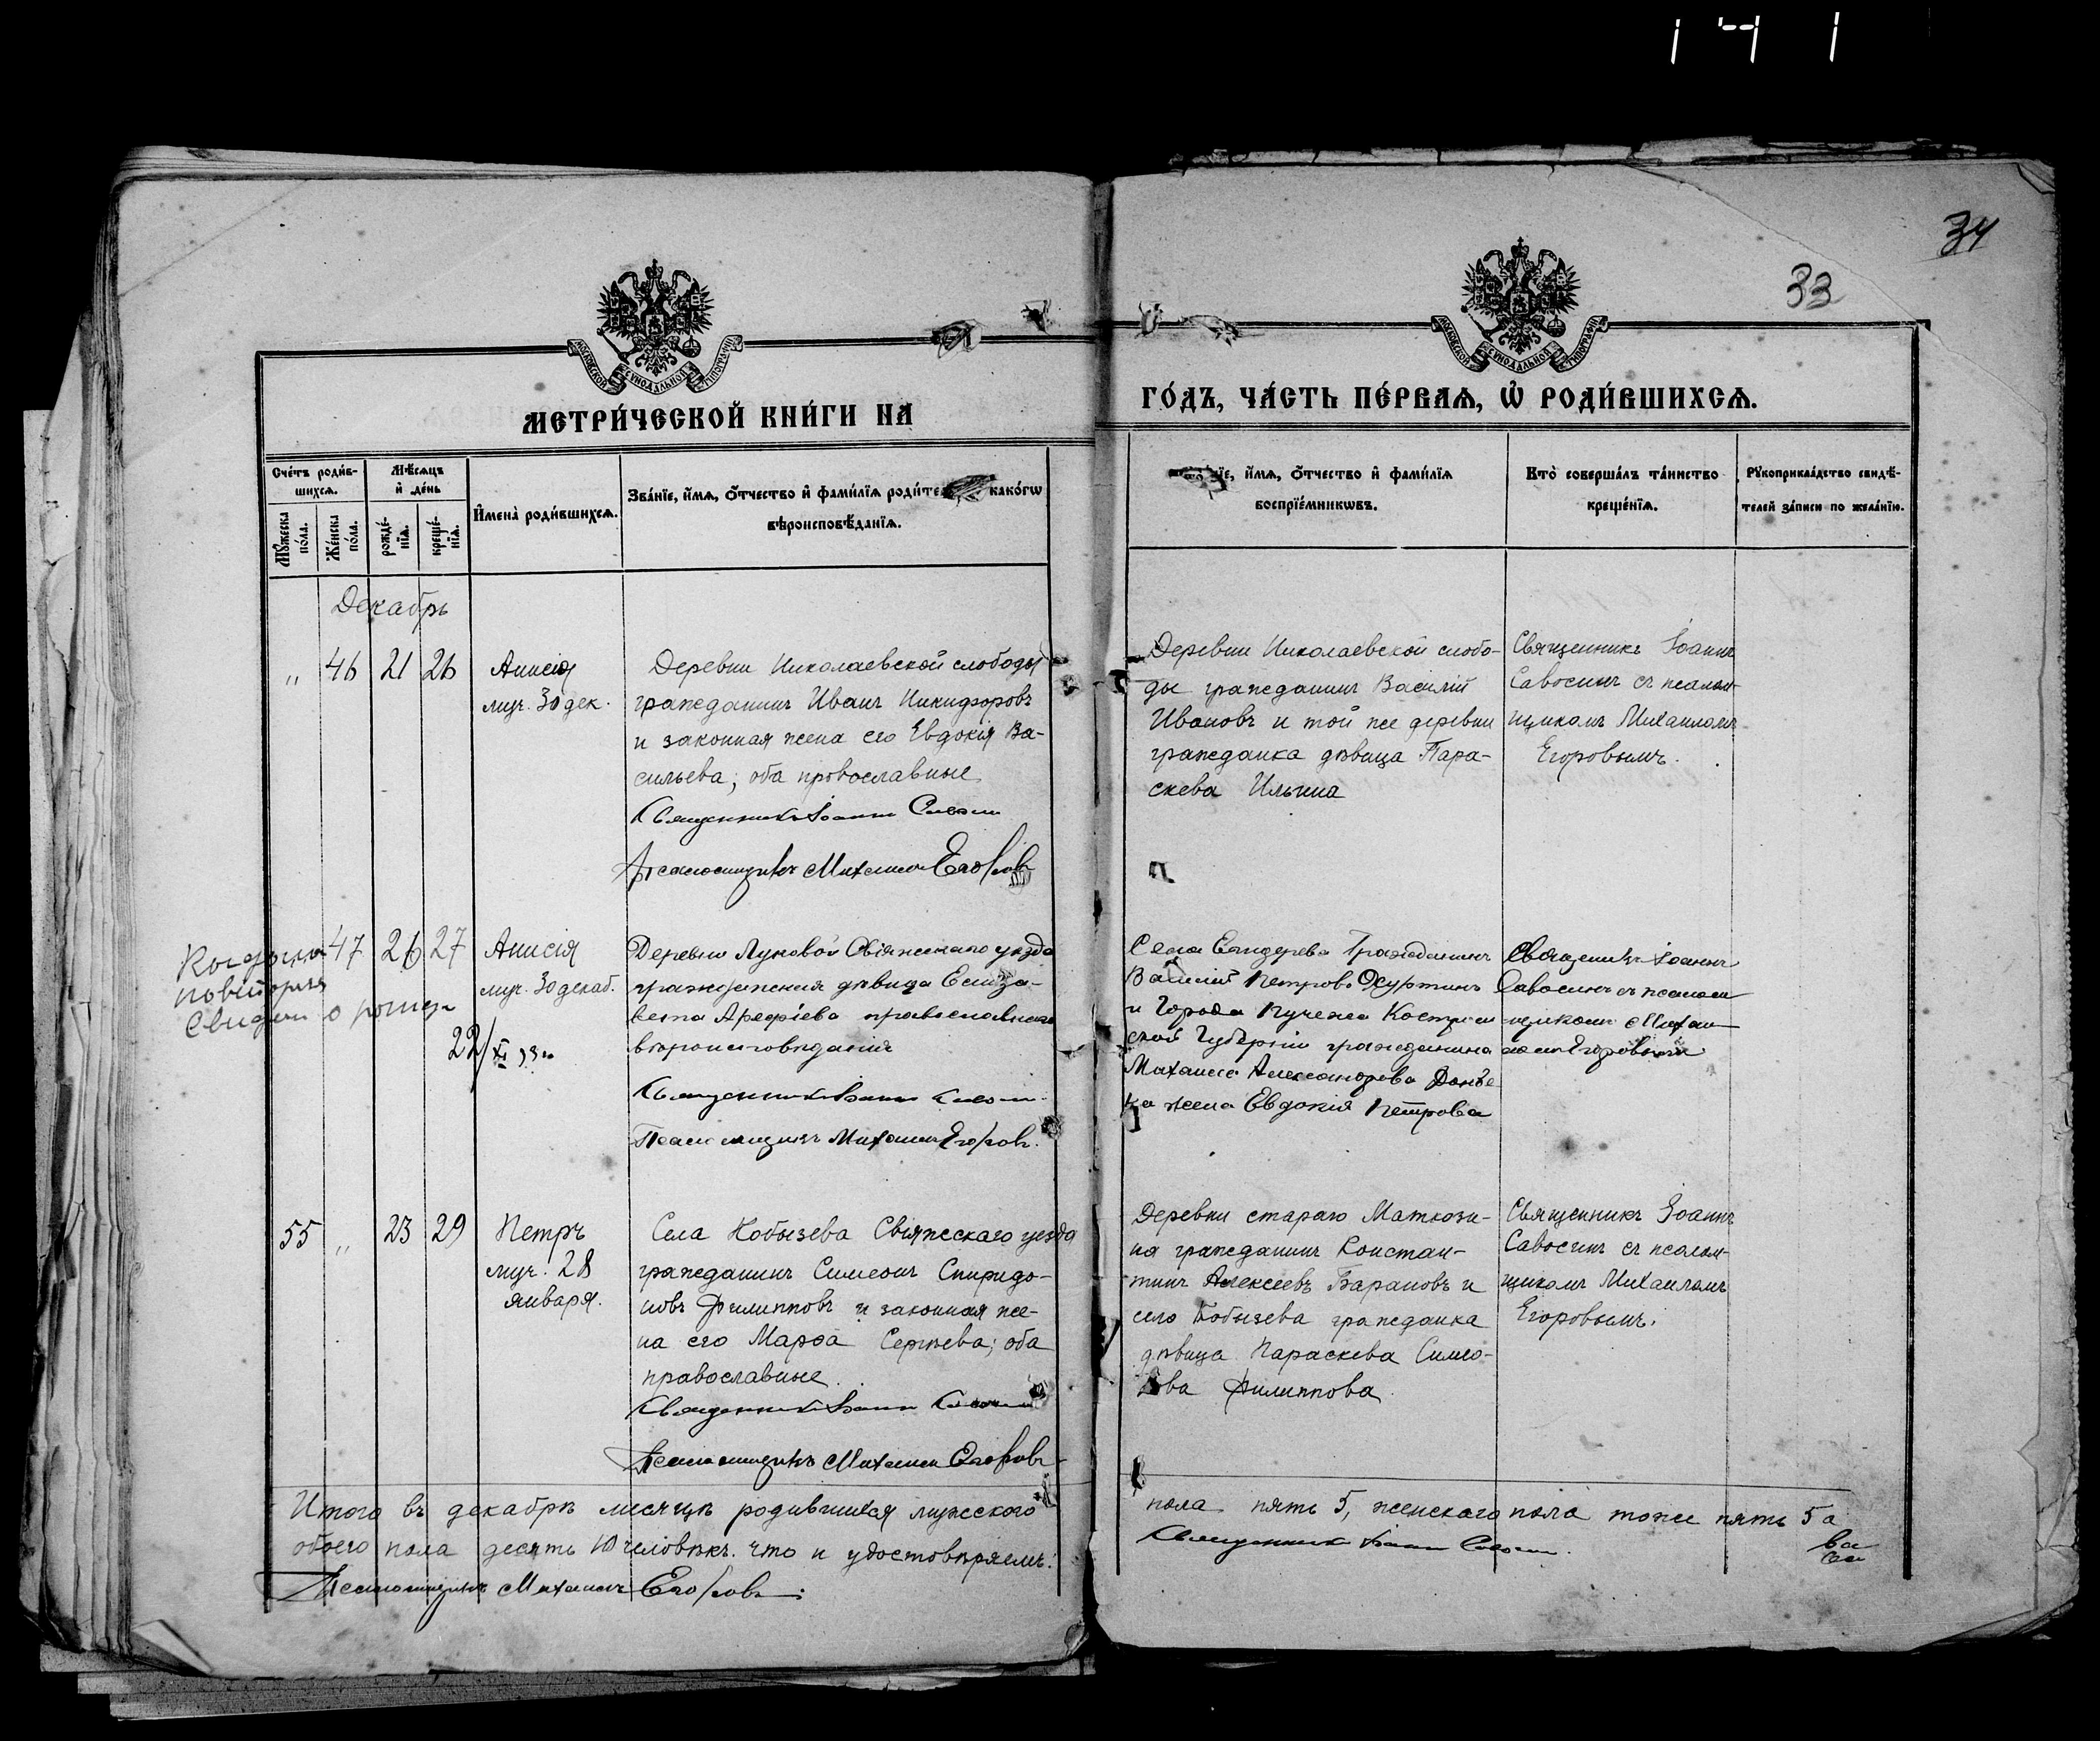 34
33
МОСКОВСКОЙ СѴНОДАЛЬНОЙ ТИПОГРАФІИ
МОСКОВСКОЙ СѴНОДАЛЬНОЙ ТИПОГРАФІИ
МЕТРИ́ЧЕСКОЙ КНИ́ГИ НА
ГО́ДЪ, ЧА́СТЬ ПЕ́РВАЯ, Ѡ҆ РОДИ́ВШИХСѦ.
Сче́тъ роди́в-
шихсѧ.
Мꙋ́жеска по́ла.
Же́нска по́ла.
Мѣ́сѧцъ
и҆ де́нь
рожде́-
нїѧ.
креще́-
нїѧ.
И҆мена̀ роди́вшихсѧ.
Зва́нїе, и҆́мѧ, ѻ҆́тчество и҆ фами́лїѧ роди́те како́гѡ
вѣроисповѣ́данїѧ.
їе, и҆́мѧ, ѻ҆́тчество и҆ фами́лїѧ
воспрїе́мникѡвъ.
Кто̀ соверша́лъ та́инство
креще́нїѧ.
Рꙋкоприкла́дство свидѣ́-
телей за́писи по жела́нїю.
Декабрь
" 46 21 26
Анисія
муч. 30 дек.
Деревни Николаевской слободы
гражданинъ Иванъ Никифоровъ
и законная жена его Евдокія Ва-
сильева; оба православные
Священникъ Іоаннъ
Псаломщикъ Михаилъ Егоровъ
Деревни Николаевской слобо-
ды гражданинъ Василій
Ивановъ и той же деревни
гражданка дѣвица Пара-
скева Ильина
Священникъ Іоаннъ
Савосинъ съ псалом-
щикомъ Михаиломъ
Егоровымъ.
47 26 27
Анисія
муч. 30 декаб.
повторн
о рожд
22/XI
Деревни Луковой Свіяжскаго уезда
гражданка дѣвица Елиза-
вета Арефіева православнаго
вѣроисповѣданія
Священникъ Іоаннъ
Псаломщикъ Михаилъ Егоровъ.
Села Гражданинъ
Василій Петровъ
и Города Пучежа Костром
ской Губерніи гражданина
Михаила Александрова
ка жена Евдокія Петрова
Священникъ Іоаннъ
Савосинъ съ псалом
щикомъ Михаи
ломъ Егоровымъ
55 " 23 29
Петръ
муч. 28
января.
Села Кобызева Свіяжскаго уезда
гражданинъ Симеонъ Спиридо-
новъ Филипповъ и законная же-
на его Марѳа Сергѣева; оба
православные.
Священникъ Іоаннъ
Псаломщикъ Михаилъ Егоровъ
Деревни стараго Маткози-
на гражданинъ Констан-
тинъ Алексеевъ Барановъ и
село Кобызева гражданка
дѣвица Параскева Симео-
нова Филиппова.
Священникъ Іоаннъ
Савосинъ съ псалом-
щикомъ Михаиломъ
Егоровымъ.
Итого въ декабрѣ месяцѣ родившихся мужского
пола пять 5, женскаго пола тоже пять 5 а
обоего пола десять 10 человѣкъ. что и удостовѣряемъ:
Священникъ Іоаннъ
Псаломщикъ Михаилъ Егоровъ.